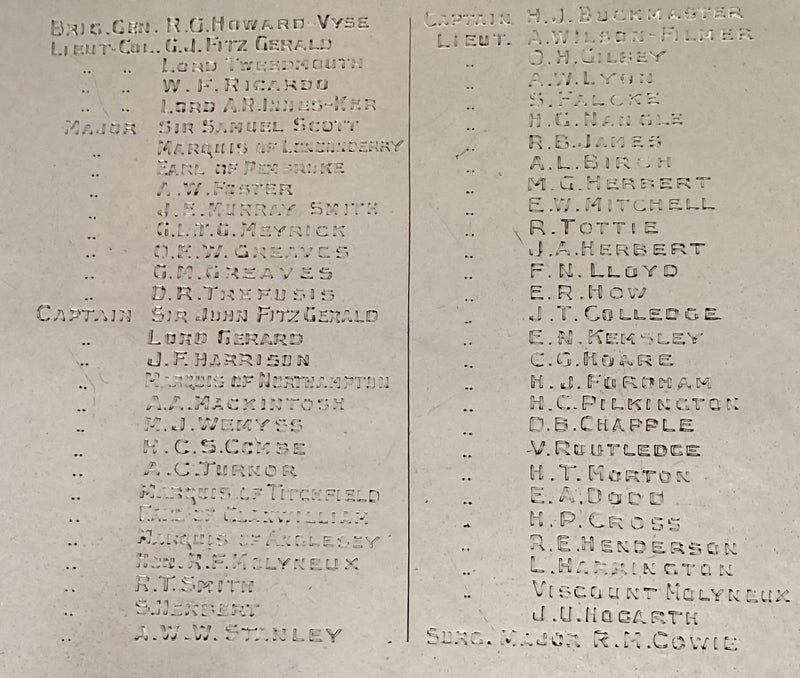 BRIG. GEN. R. G. HOWARD-VYSE
LIEUT-COL. G. J. FITZ GERALD
„ „ LORD TWEEDMOUTH
„ „ W. F. RICARDO
„ „ LORD A. R. INNES-KER
MAJOR SIR SAMUEL SCOTT
„ MARQUIS OF LONDONDERRY
„ EARL OF PEMBROKE
„ A. W. FOSTER
„ J. E. MURRAY SMITH
„ G. L. T. G. MEYRICK
„ O. E. W. GREAVES
„ G. M. GREAVES
„ D. R. TREFUSIS
CAPTAIN SIR JOHN FITZ GERALD
„ LORD GERARD
„ J. F. HARRISON
„ MARQUIS OF NORTHAMPTON
„ A. A. MACKINTOSH
„ M. J. WEMYSS
„ H. C. S. COMBE
„ A. C. TURNOR
„ MARQUIS OF TITCHFIELD
„ EARL OF CLANWILLIAM
„ MARQUIS OF ANGLESEY
„ HON. R. F. MOLYNEUX
„ R. T. SMITH
„ S. HERBERT
„ A. W. W. STANLEY
CAPTAIN H. J. BUCKMASTER
LIEUT. A. WILSON-FILMER
„ O. H. GILBEY
„ A. W. LYON
„ S. FALCKE
„ H. G. NANGLE
„ R. B. JAMES
„ A. L. BIRCH
„ M. G. HERBERT
„ E. W. MITCHELL
„ R. TOTTIE
„ J. A. HERBERT
„ F. N. LLOYD
„ E. R. HOW
„ J. T. COLLEDGE
„ E. N. KEMSLEY
„ C. G. HOARE
„ H. J. FORDHAM
„ H. C. PILKINGTON
„ D. B. CHAPPLE
„ V. ROUTLEDGE
„ H. T. MORTON
„ E. A. DODD
„ H. P. CROSS
„ R. E. HENDERSON
„ L. HARRINGTON
„ VISCOUNT MOLYNEUX
J. U. HOGARTH
SURG. MAJOR R. M. COWIE